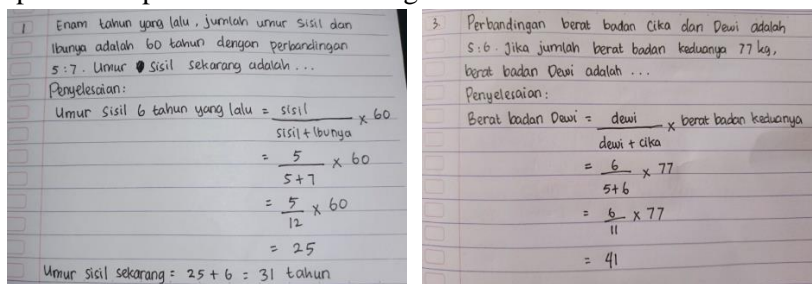 1 Enam tahun yang lalu, jumlah umur Sisil dan
Ibunya adalah 60 tahun dengan perbandingan
5:7. Umur Sisil sekarang adalah ...
Penyelesaian:
Umur Sisil 6 tahun yang lalu = sisil / sisil + Ibunya x 60
= 5 / 5+7 x 60
= 5 / 12 x 60
= 25
Umur sisil sekarang = 25 + 6 = 31 tahun
3. Perbandingan berat badan Cika dan Dewi adalah
5:6. Jika jumlah berat badan keduanya 77 kg,
berat badan Dewi adalah ...
Penyelesaian:
Berat badan Dewi = dewi / dewi + cika x berat badan keduanya
= 6 / 5+6 x 77
= 6 / 11 x 77
= 41